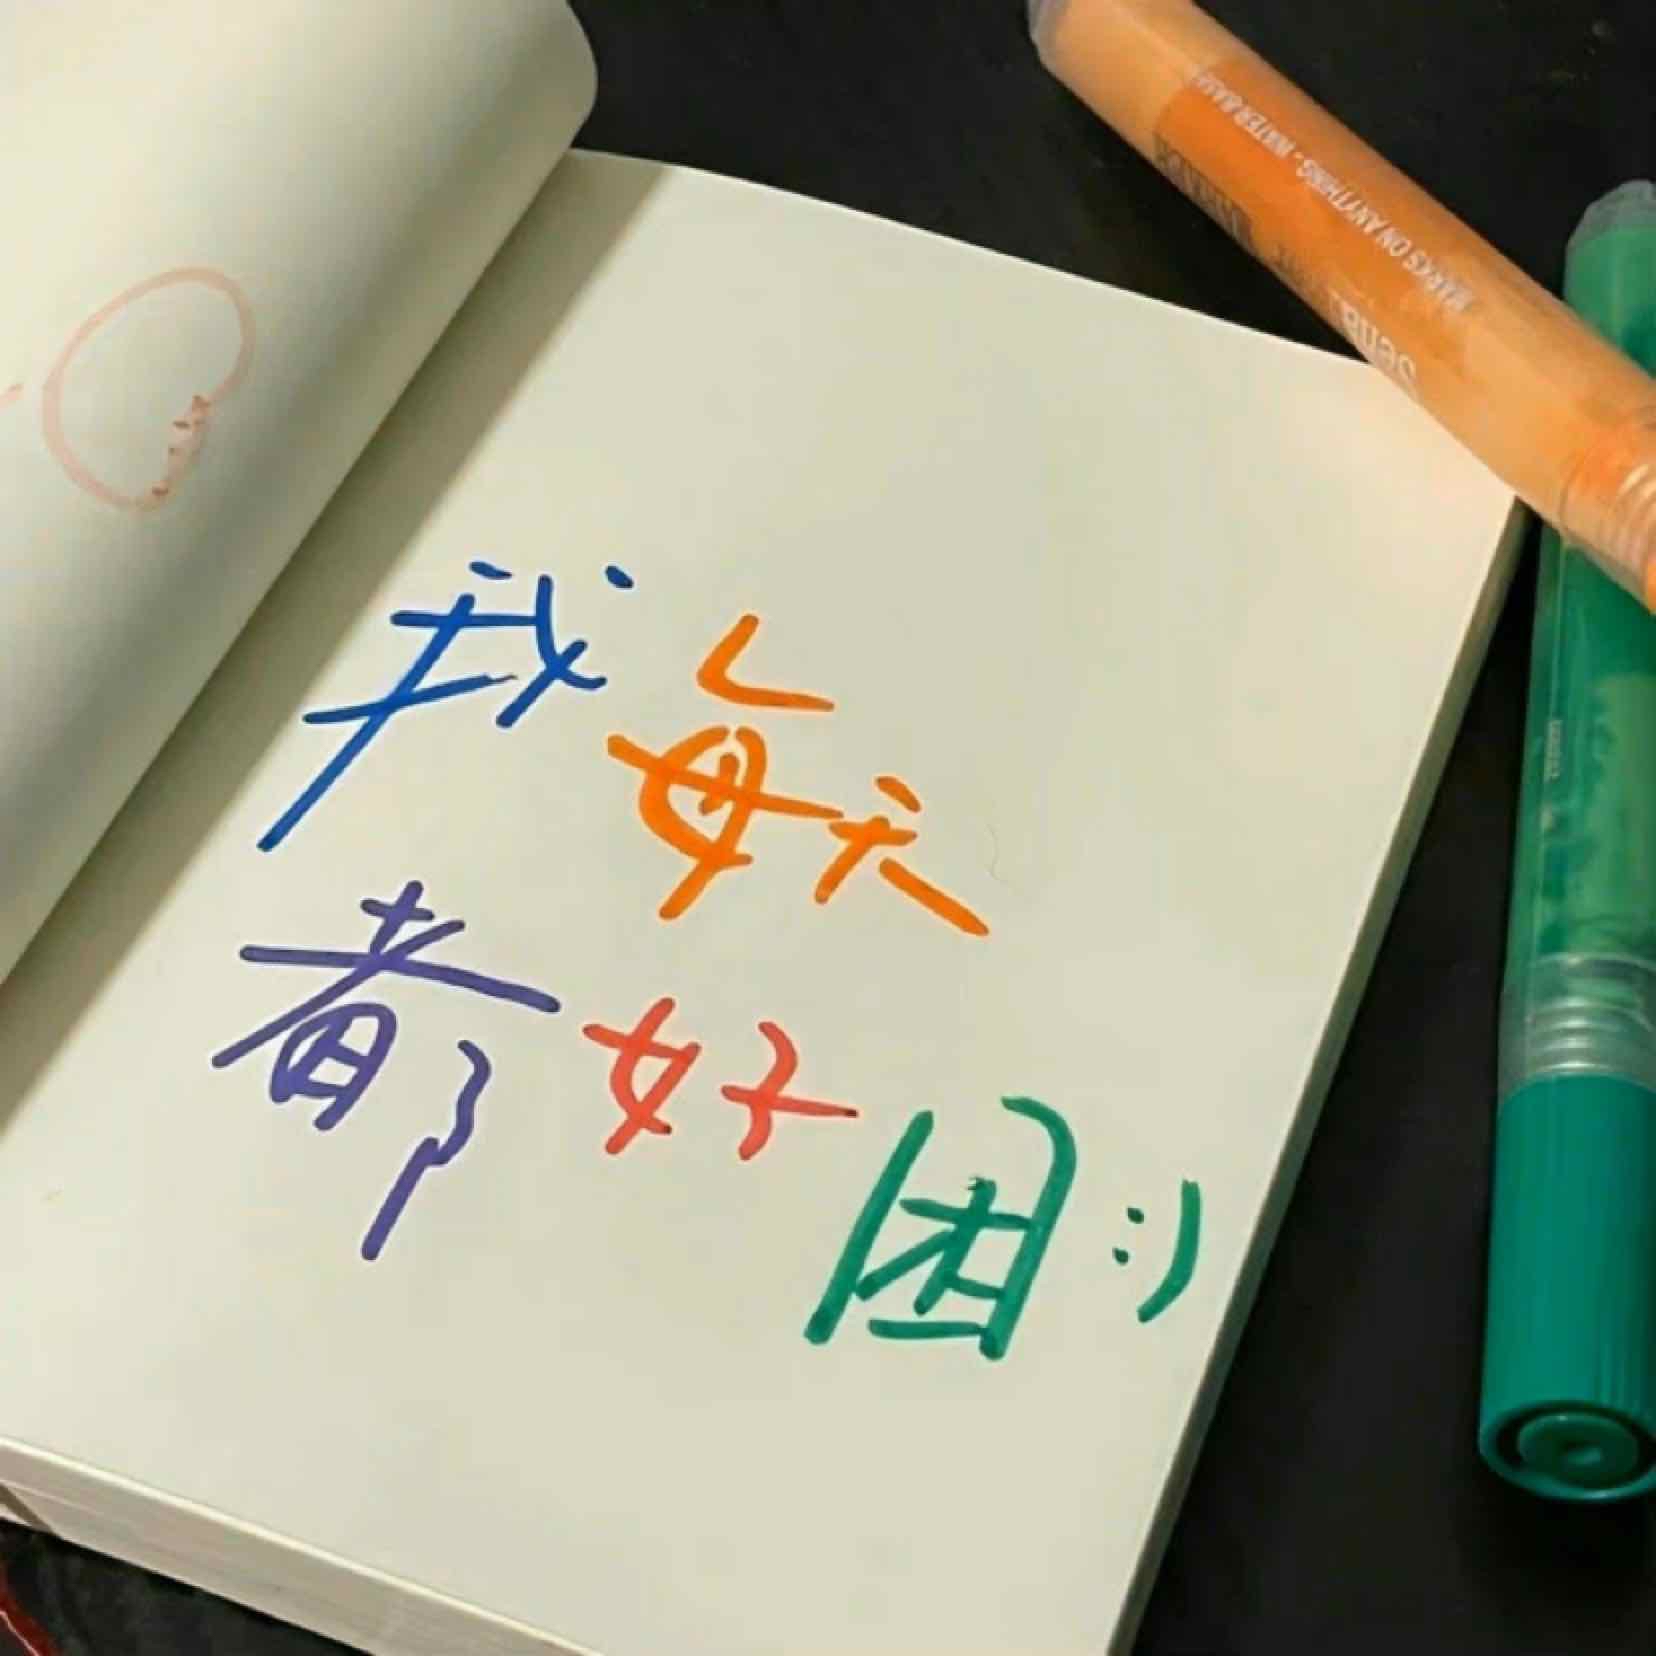 我每天
都好困:)
MARKS ON ANYTHING - WATER BASED
Sena